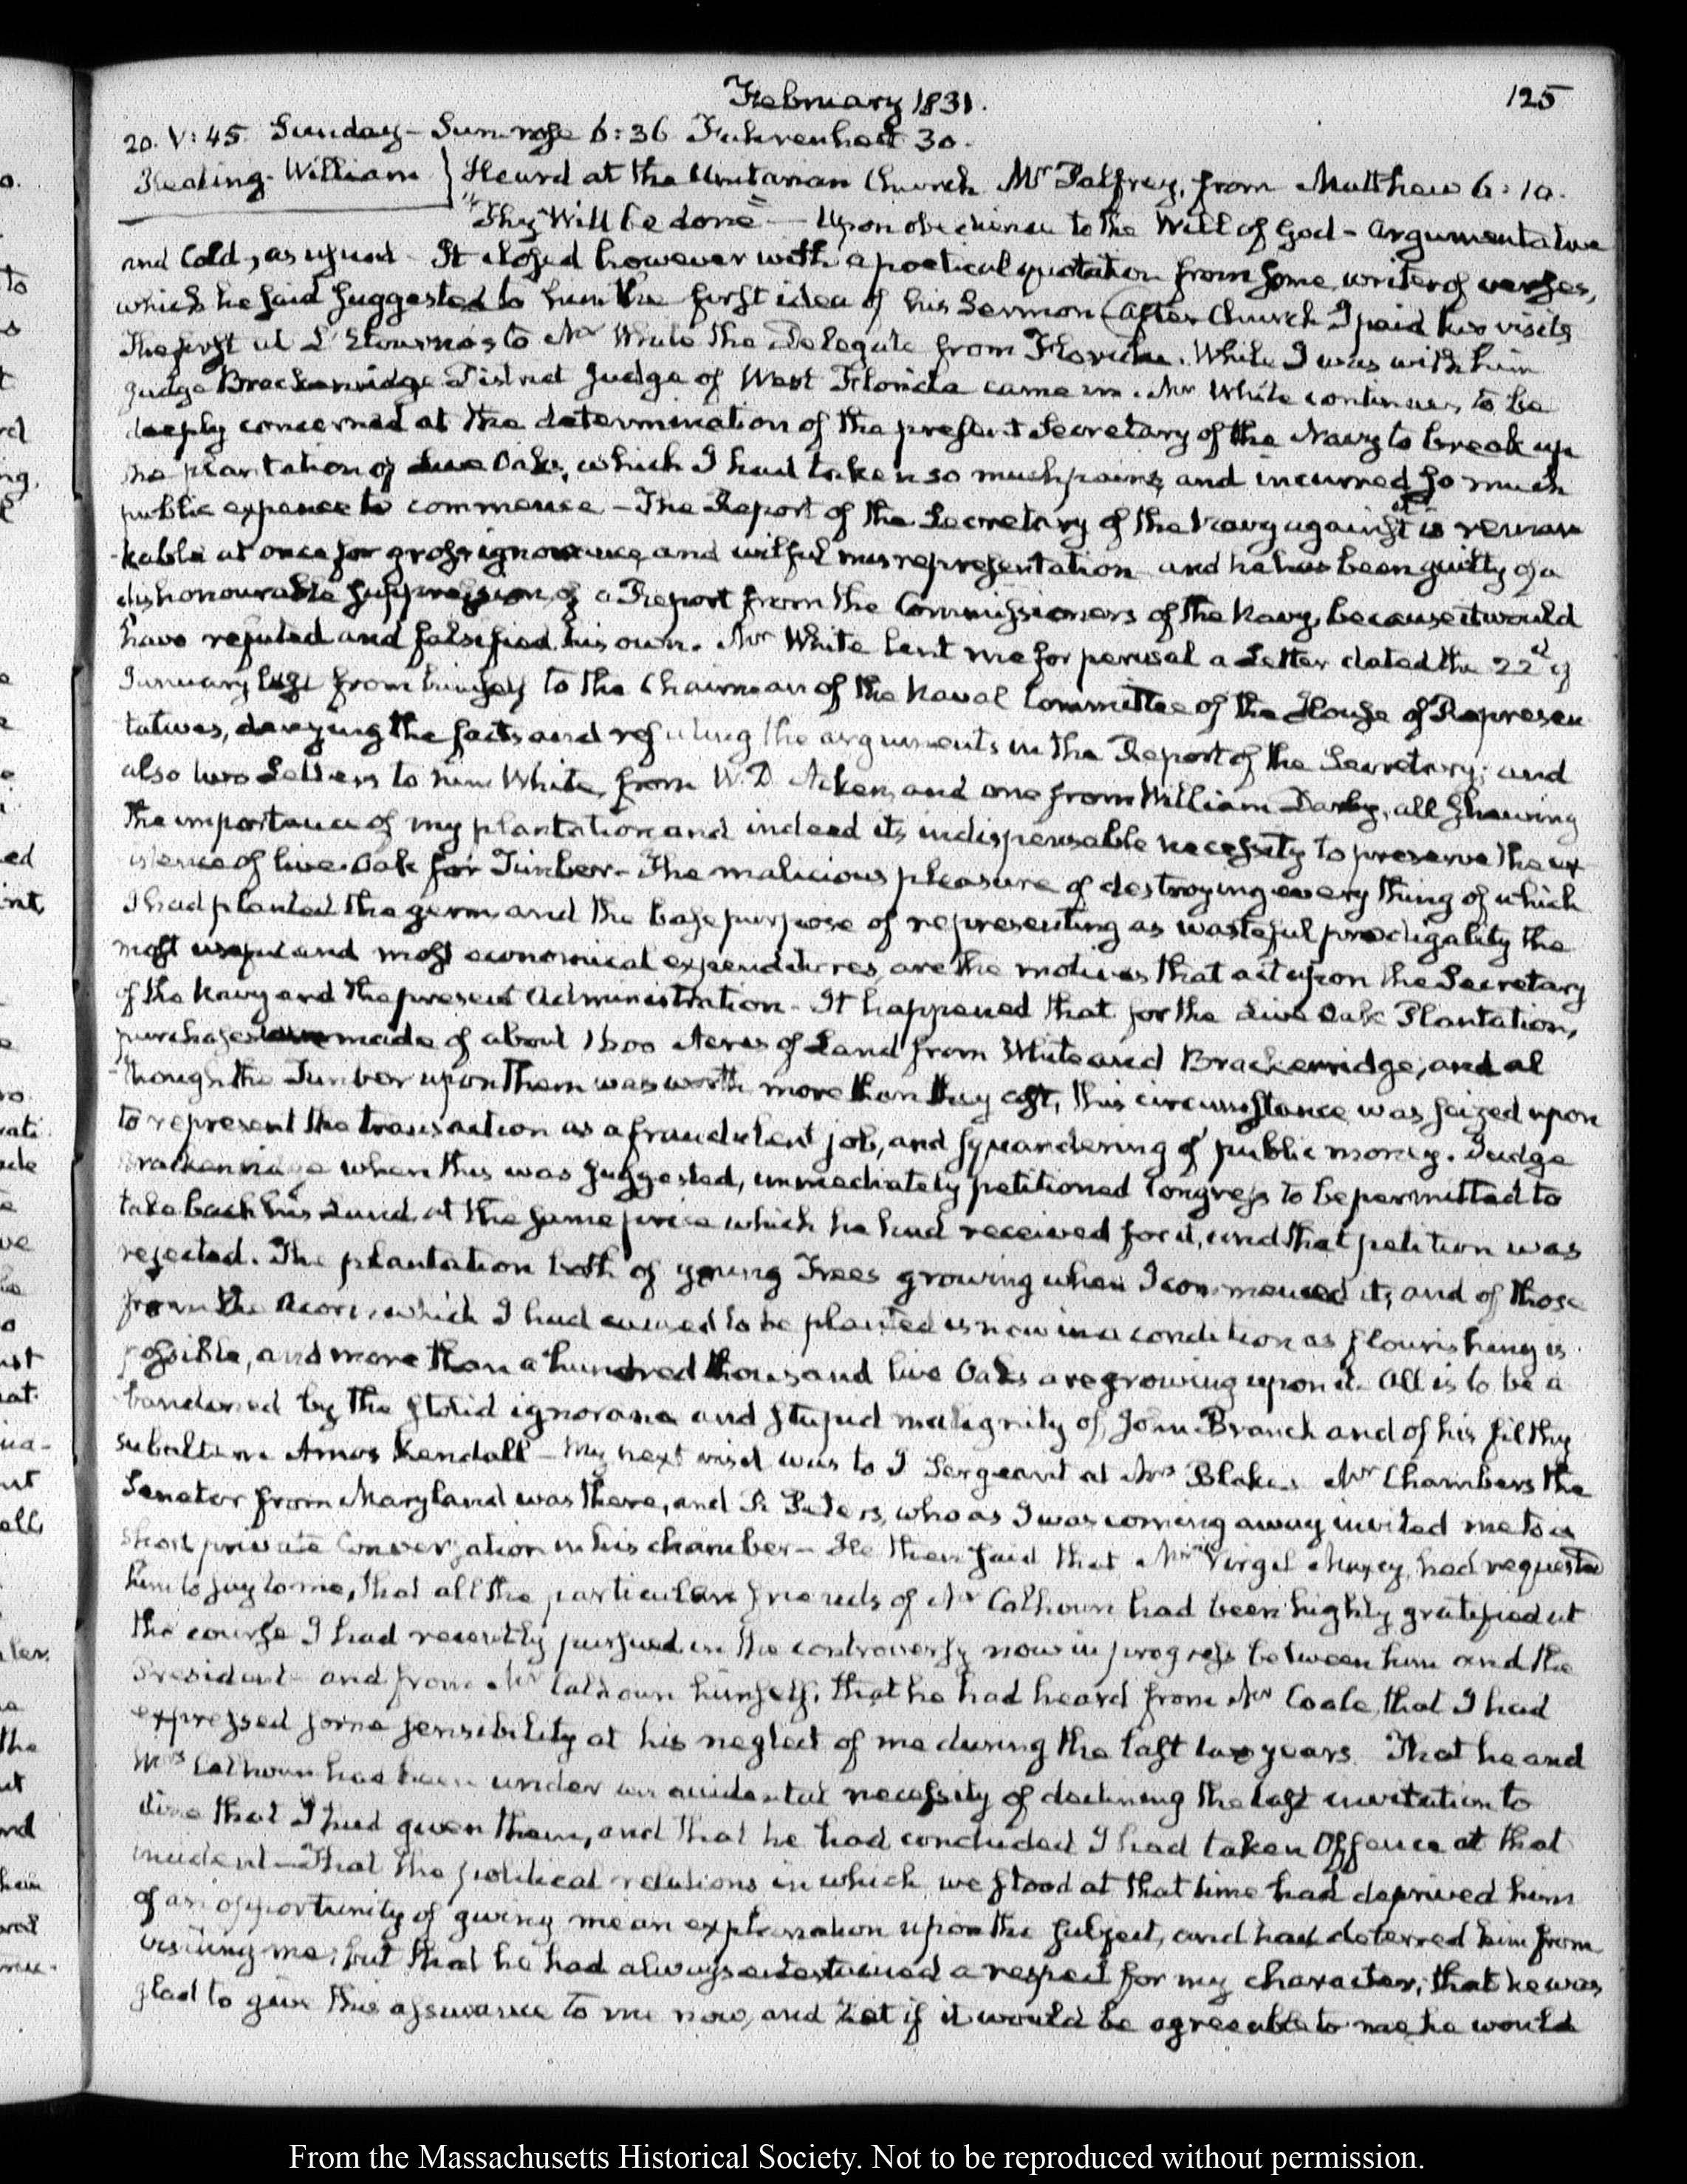 February 1831.
125
20. V:45. Sunday - Sun rose 6:36 Fahrenheit 30.
Keating. William } Heard at the Unitarian Church Mr Palfrey, from Matthew 6:10.
"Thy Will be done" — Upon obedience to the Will of God - argumentative
and Cold, as usual - It closed however with a poetical quotation from some writer of verses,
which he said suggested to him the first idea of his Sermon (After Church I paid two visits
The first at L'Etourno's to Mr White the Delegate from Florida. While I was with him
Judge Brackenridge District Judge of West Florida came in. Mr White continues to be
deeply concerned at the determination of the present Secretary of the Navy to break up
the plantation of Live Oaks, which I had taken so much pains, and incurred so much
public expence to commence - The Report of the Secretary of the Navy against it is remar
-kable at once for gross ignorance, and wilful misrepresentation and he has been guilty of a
dishonourable suppression of a Report from the Commissioners of the Navy, because it would
have refuted and falsified his own. Mr White lent me for perusal a Letter dated the 22d of
January last from himself to the Chairman of the Naval Committee of the House of Represen
tatives, denying the facts and refuting the arguments in the Report of the Secretary; and
also two Letters to him White, from W. D. Acken, and one from William Darby, all shewing
the importance of my plantation and indeed its indispensable necessity to preserve the ex
istence of live-Oak for Timber - The malicious pleasure of destroying every thing of which
I had planted the germ, and the base purpose of representing as wasteful prodigality the
most useful and most economical expenditures, are the motives that act upon the Secretary
of the Navy and the present Administration - It happened that for the Live Oak Plantation,
purchases were made of about 1600 Acres of Land from White and Brackenridge; and al
-though the Timber upon them was worth more than they cost, this circumstance was seized upon
to represent the transaction as a fraudulent job, and squandering of public money. Judge
Brackenridge when this was suggested, immediately petitioned Congress to be permitted to
take back his Land at the same price which he had received for it, and that petition was
rejected. The plantation both of young Trees growing when I commenced it, and of those
from the Acorn, which I had caused to be planted is now in a condition as flourishing as
possible, and more than a hundred thousand live Oaks are growing upon it. All is to be a
bandoned by the stolid ignorance and stupid malignity of John Branch and of his filthy
subaltern Amos Kendall - My next visit was to J Sergeant at Mrs Blake's Mr Chambers the
Senator from Maryland was there, and R Peters, who as I was coming away invited me to a
short private Conversation in his chamber - He then said that Mr Virgil Maxcy, had requested
him to say to me, that all the particular friends of Mr Calhoun had been highly gratified at
the course I had recently pursued in the controversy now in progress between him and the
President - and from Mr Calhoun himself, that he had heard from Mr Coale, that I had
expressed some sensibility at his neglect of me during the last two years. That he and
Mrs Calhoun had been under an accidental necessity of declining the last invitation to
dine that I had given them, and that he had concluded I had taken Offence at that
incident - That the political relations in which we stood at that time had deprived him
of an opportunity of giving me an explanation upon the subject, and had deterred him from
visiting me; but that he had always entertained a respect for my character; that he was
glad to give this assurance to me now, and that if it would be agreeable to me, he would
From the Massachusetts Historical Society. Not to be reproduced without permission.